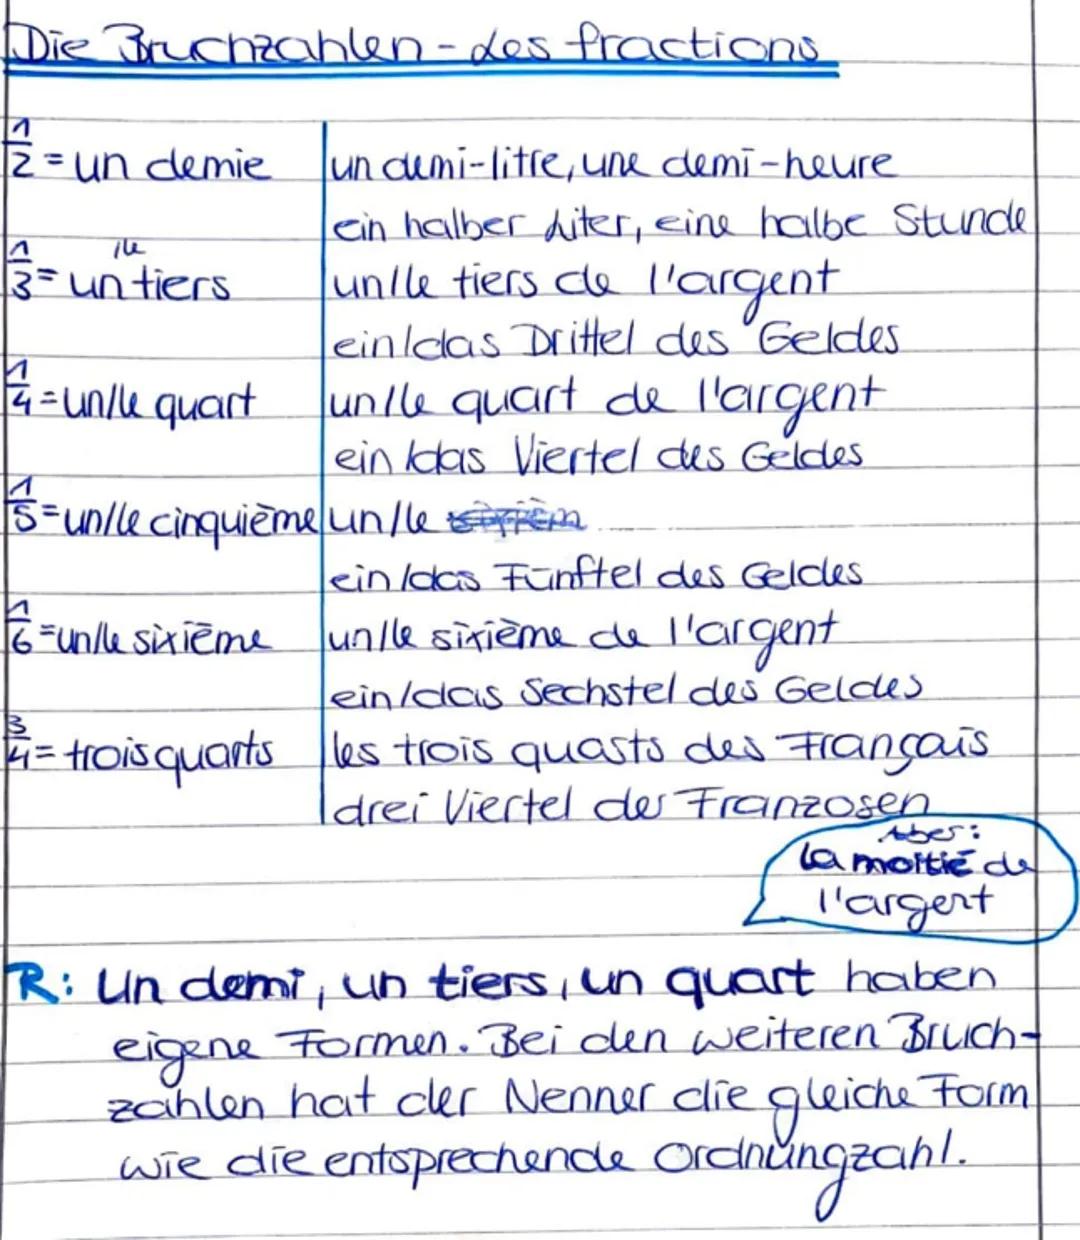 Die Bruchzahlen - des fractions
1/2 = un demie un demi-litre, une demi-heure
ein halber Liter, eine halbe Stunde
1/3 = un /le tiers un/le tiers de l'argent
ein/das Drittel des Geldes
1/4 = un/le quart un/le quart de l'argent
ein/das Viertel des Geldes
1/5 = un/le cinquième un/le
ein/das Fünftel des Geldes
1/6 = un/le sixième un/le sixième de l'argent
ein/das Sechstel des Geldes
3/4 = trois quarts les trois quasts des Français
drei Viertel der Franzosen
Aber:
la moitié de
l'argent
R: Un demi, un tiers, un quart haben
eigene Formen. Bei den weiteren Bruch-
zahlen hat der Nenner die gleiche Form
wie die entsprechende Ordnungzahl.